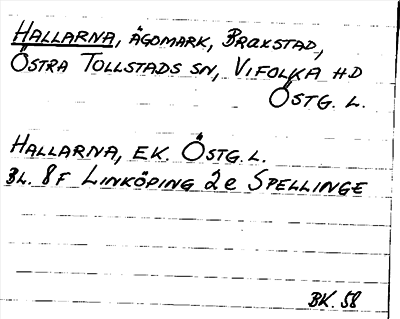 HALLARNA, ÄGOMARK, BROXSTAD,
ÖSTRA TOLLSTADS SN, VIFOLKA HD
ÖSTG. L.
HALLARNA, EK. ÖSTG. L.
BL. 8F LINKÖPING 2e SPELLINGE
BK. 58